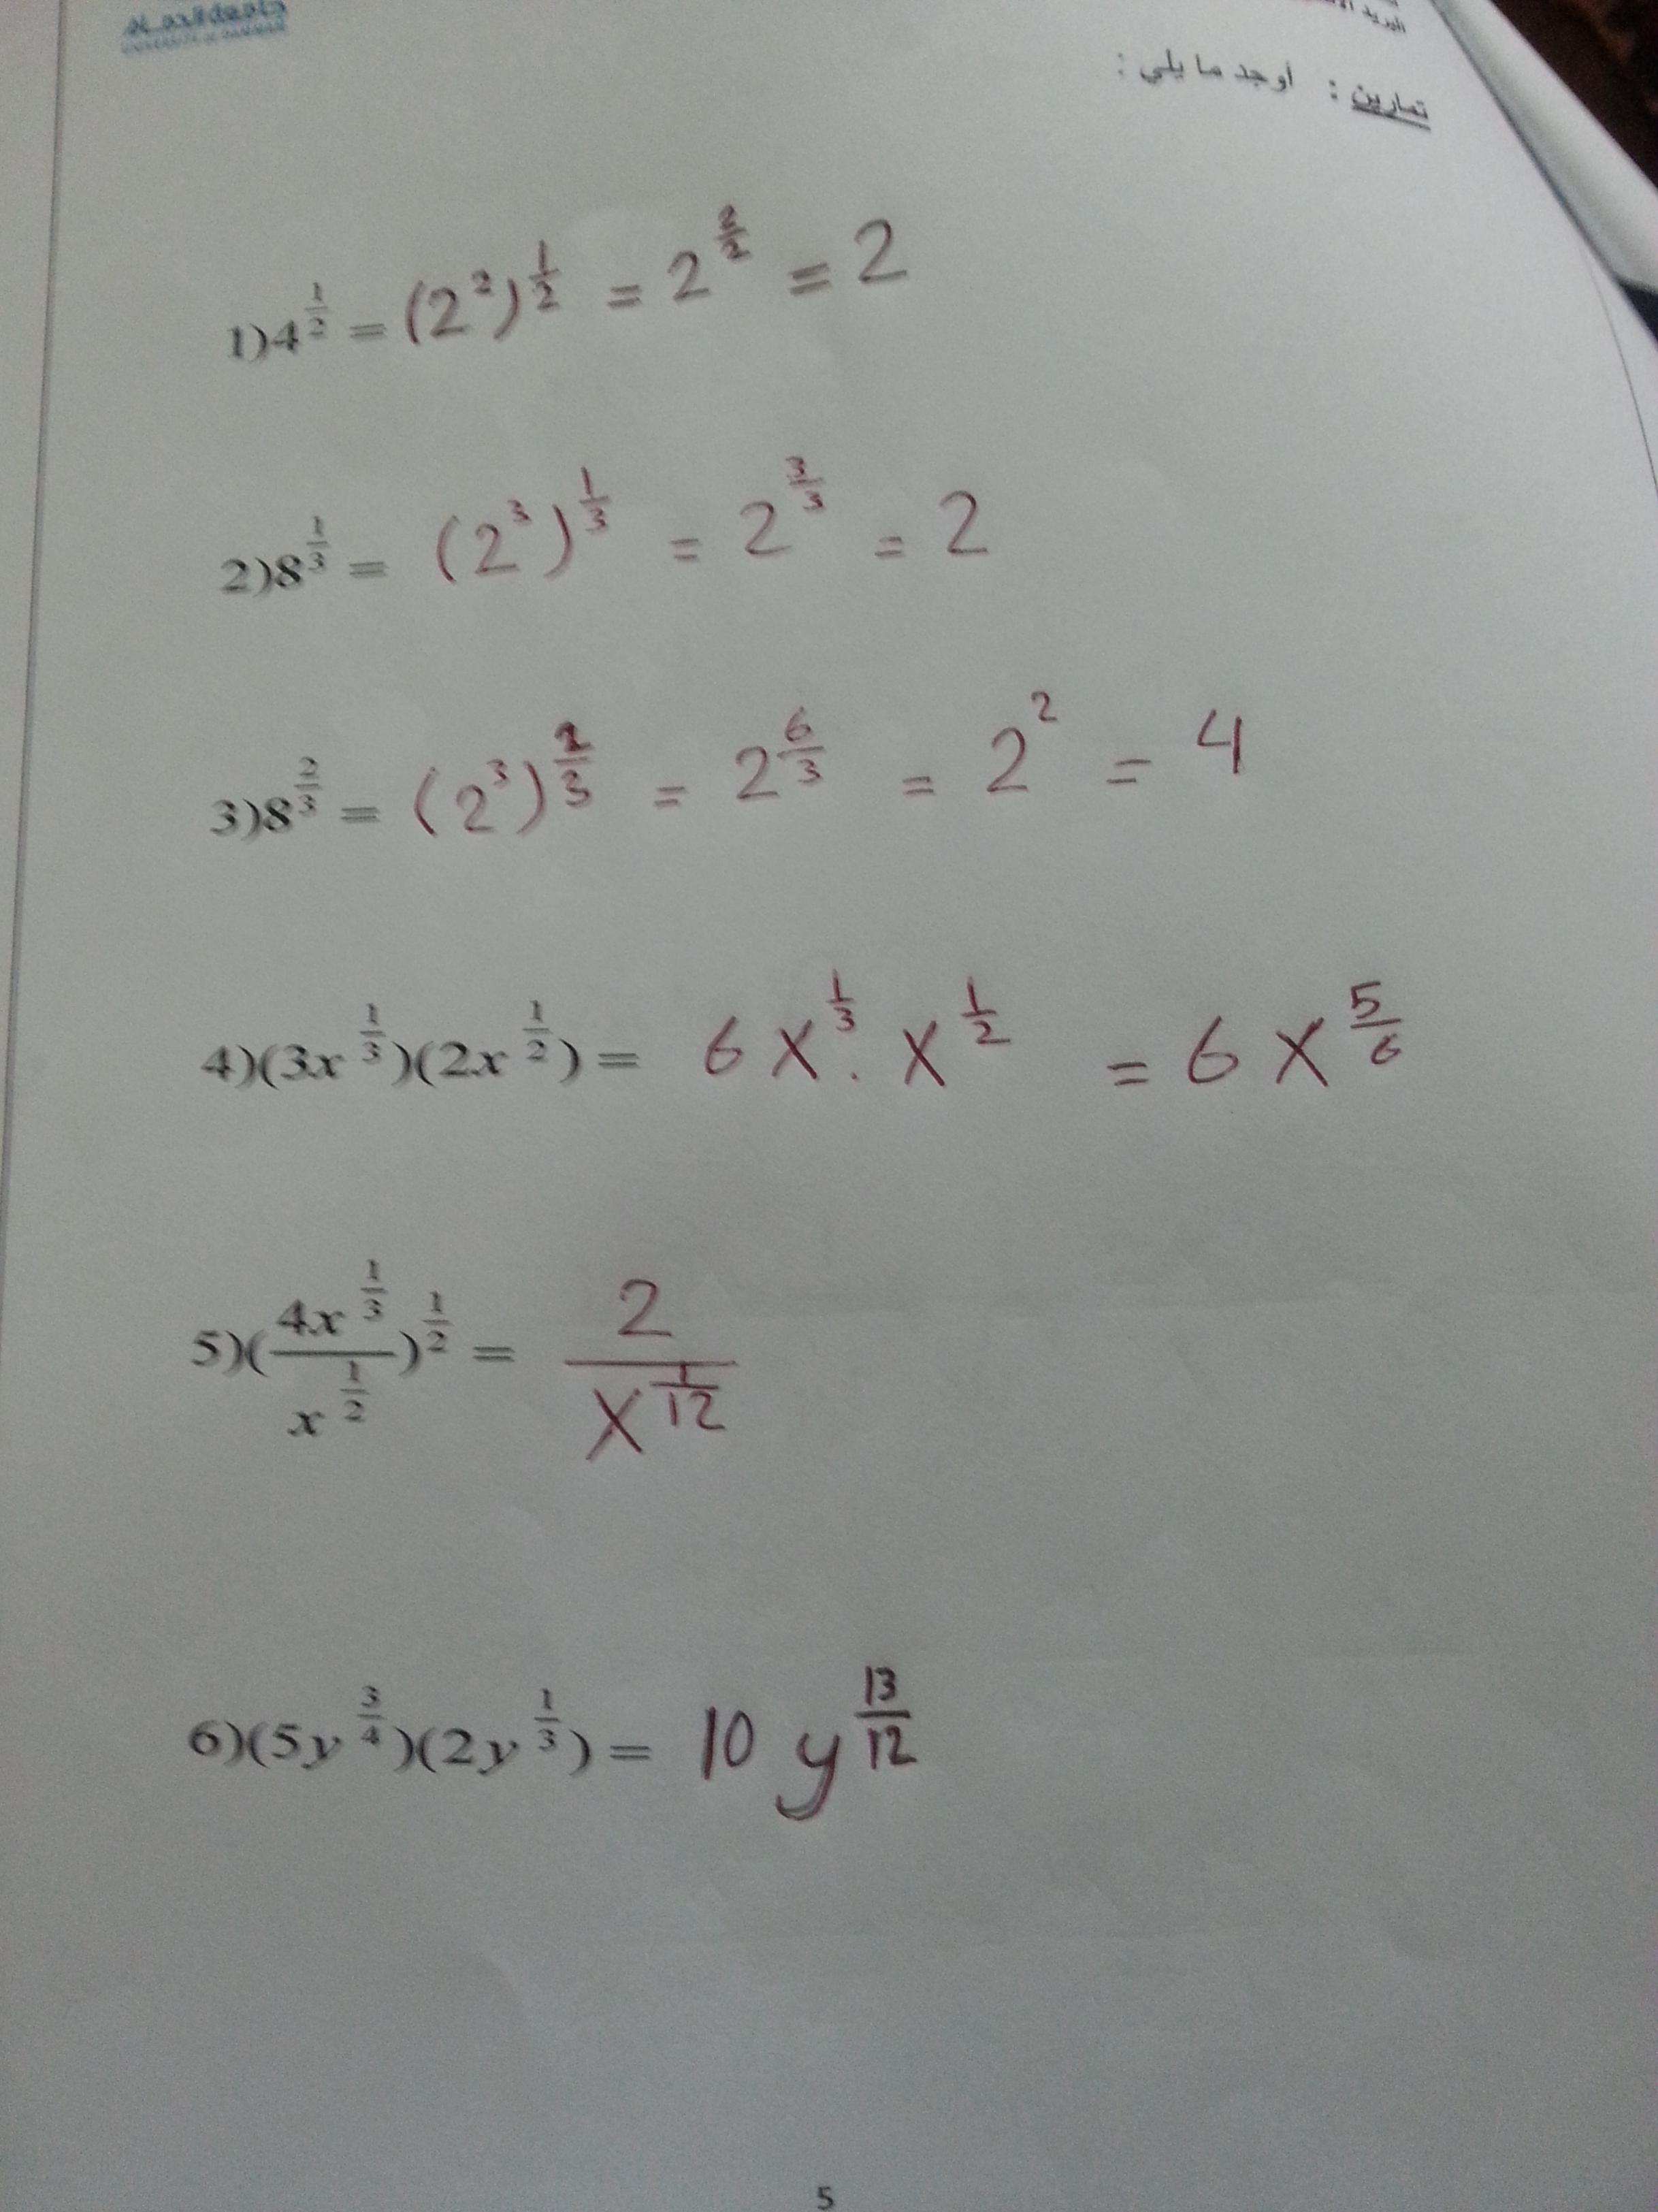 UNIVERSITY OF DAMMAM
تمارين : أوجد ما يلي :
1)4^{1/2} = (2^2)^{1/2} = 2^{2/2} = 2
2)8^{1/3} = (2^3)^{1/3} = 2^{3/3} = 2
3)8^{2/3} = (2^3)^{2/3} = 2^{6/3} = 2^2 = 4
4)(3x^{1/3})(2x^{1/2}) = 6 x^{1/3} . x^{1/2} = 6 x^{5/6}
5)(4x^{1/3} / x^{1/2})^{1/2} = 2 / x^{1/12}
6)(5y^{3/4})(2y^{1/3}) = 10 y^{13/12}
5